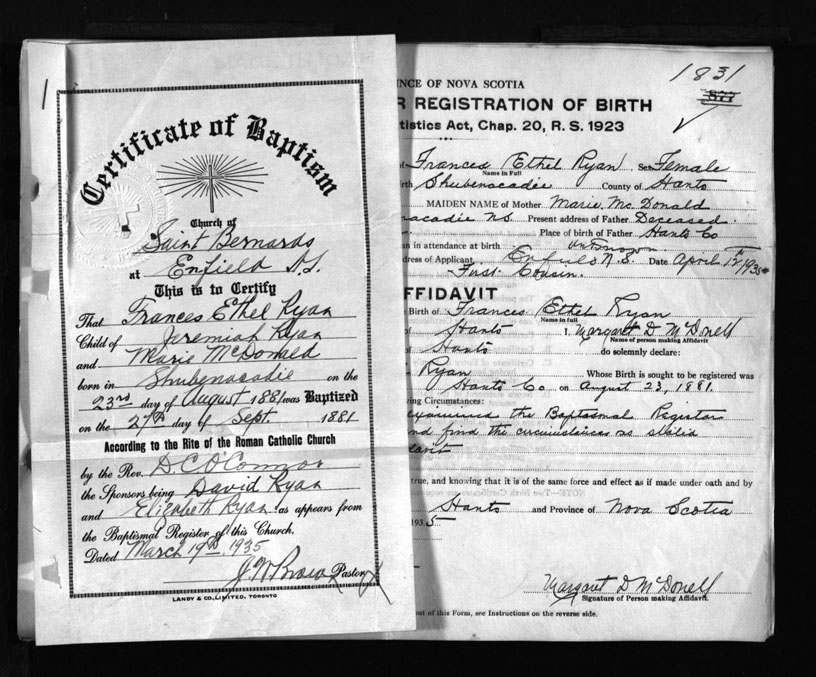 Certificate of Baptism
Church of
Saint Bernards
at Enfield N.S.
This is to Certify
That Frances Ethel Ryan
Child of Jeremiah Ryan
and Marie McDonald
born in Shubenacadie on the
23rd day of August 1881 was Baptized
on the 27th day of Sept. 1881
According to the Rite of the Roman Catholic Church
by the Rev. D C O'Connor
the Sponsors being David Ryan
and Elizabeth Ryan as appears from
the Baptismal Register of this Church.
Dated March 19th 1935
Pastor
LANDY & CO. LIMITED, TORONTO
1831
INCE OF NOVA SCOTIA
R REGISTRATION OF BIRTH
tistics Act, Chap. 20, R. S. 1923
of Frances Ethel Ryan Sex Female
Name in Full
rth Shubenacadie County of Hants
MAIDEN NAME of Mother Marie McDonald
nacadie N.S. Present address of Father Deceased.
Place of birth of Father Hants Co
an in attendance at birth Unknown
dress of Applicant, Enfield N.S. Date April 1935
First Cousin.
FFIDAVIT
Birth of Frances Ethel Ryan
Name in full
of Hants I, Margaret D McDonell
Name of person making Affidavit
of Hants do solemnly declare:
Ryan Whose Birth is sought to be registered was
Hants Co on August 23, 1881.
ing Circumstances:
examined the Baptasmal Register
nd find the circumstances as
davit
true, and knowing that it is of the same force and effect as if made under oath and by
Hants and Province of Nova Scotia
1935
Margaret D McDonell
Signature of Person making Affidavit.
out of this Form, see Instructions on the reverse side.